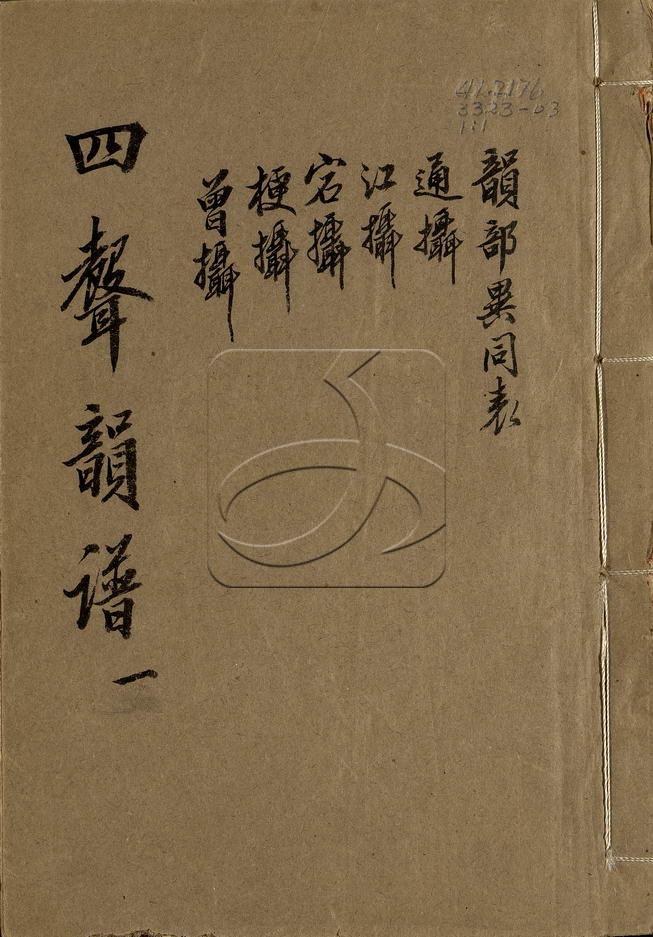 韻部異同表
通攝
江攝
宕攝
梗攝
曾攝
四聲韻譜一
3323-03
1:1